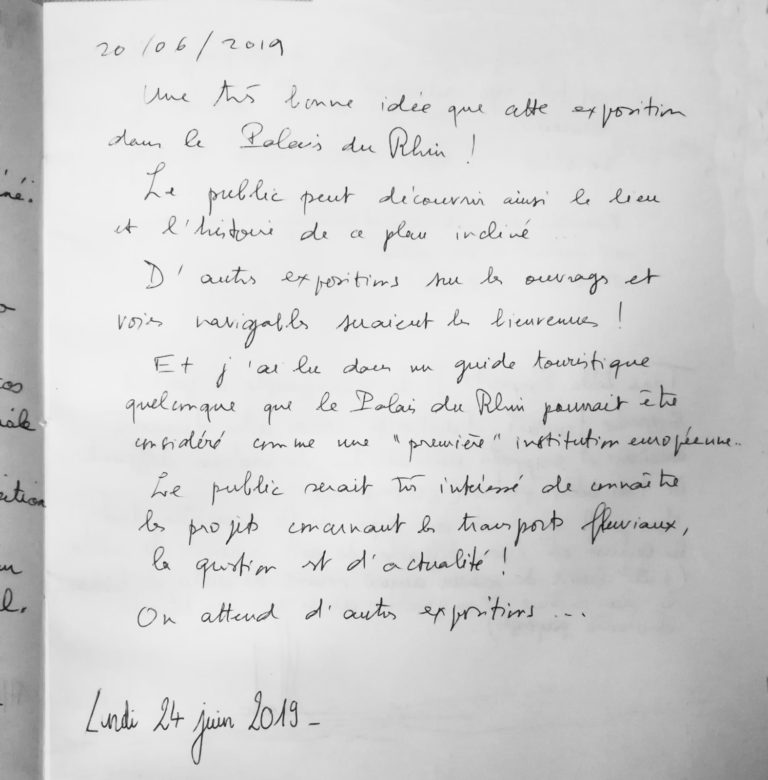 20/06/2019
Une très bonne idée que cette exposition
dans le Palais du Rhin !
Le public peut découvrir ainsi le lieu
et l'histoire de ce plan incliné
D'autres expositions sur les ouvrages et
voies navigables seraient les bienvenues !
Et j'ai lu dans un guide touristique
quelconque que le Palais du Rhin pourrait être
considéré comme une "première" institution européenne..
Le public serait très intéressé de connaître
les projets concernant les transports fluviaux,
la question est d'actualité !
On attend d'autres expositions ...
Lundi 24 juin 2019 -